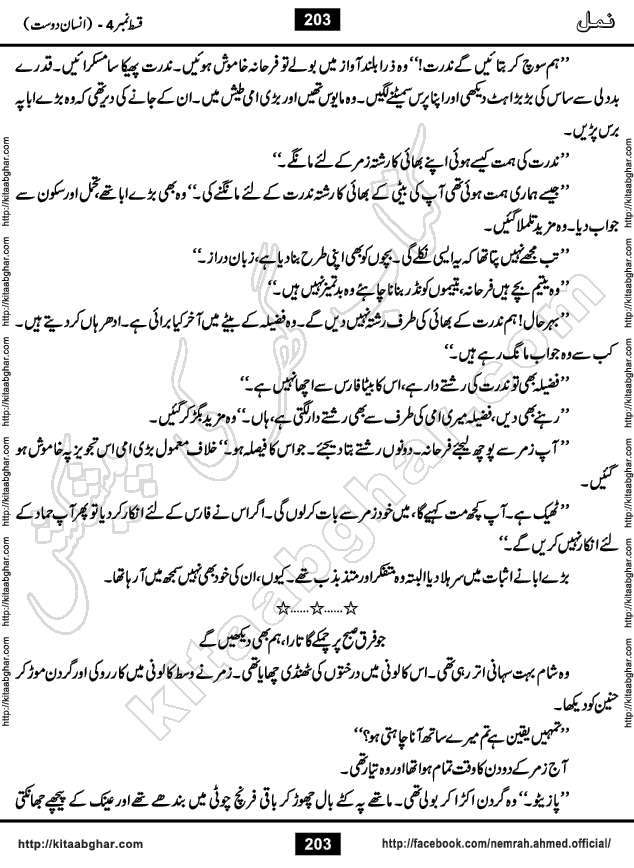 نمل
203
قسط نمبر 4 - (انسان دوست)
’’ہم سوچ کر بتائیں گے ندرت!‘‘ وہ ذرا بلند آواز میں بولے تو فرحانہ خاموش ہوئیں۔ ندرت پھیکا سا مسکرائیں۔ قدرے
بددلی سے ساس کی بڑبڑاہٹ دیکھی اور اپنا پرس سمیٹنے لگیں۔ وہ مایوس تھیں اور بڑی امی طیش میں۔ ان کے جانے کی دیر تھی کہ وہ بڑے ابا پہ
برس پڑیں۔
’’ندرت کی ہمت کیسے ہوئی اپنے بھائی کا رشتہ زمر کے لئے مانگے۔‘‘
’’جیسے ہماری ہمت ہوئی تھی آپ کی بیٹی کے بھائی کا رشتہ ندرت کے لئے مانگنے کی۔‘‘ وہ بھی بڑے ابا تھے، تحمل اور سکون سے
جواب دیا۔ وہ مزید تلملا گئیں۔
’’تب مجھے نہیں پتا تھا کہ یہ ایسی نکلے گی۔ بچوں کو بھی اپنی طرح بنا دیا ہے، زبان دراز۔‘‘
’’وہ یتیم بچے ہیں فرحانہ، یتیموں کو نڈر بنانا چاہئے وہ بدتمیز نہیں ہیں۔‘‘
’’بہرحال! ہم ندرت کے بھائی کی طرف رشتہ نہیں دیں گے۔ وہ فضیلہ کے بیٹے میں آخر کیا برائی ہے۔ ادھر ہاں کر دیتے ہیں۔
کب سے وہ جواب مانگ رہے ہیں۔‘‘
’’فضیلہ بھی تو ندرت کی رشتے دار ہے، اس کا بیٹا فارس سے اچھا نہیں ہے۔‘‘
’’رہنے بھی دیں، فضیلہ میری امی کی طرف سے بھی رشتے دار لگتی ہے، ہاں۔‘‘ وہ مزید بگڑ کر گئیں۔
’’آپ زمر سے پوچھ لیجئے فرحانہ۔ دونوں رشتے بتا دیجئے۔ جو اس کا فیصلہ ہو۔‘‘ خلاف معمول بڑی امی اس تجویز پہ خاموش ہو
گئیں۔
’’ٹھیک ہے۔ آپ کچھ مت کہیے گا، میں خود زمر سے بات کر لوں گی۔ اگر اس نے فارس کے لئے انکار کر دیا تو پھر آپ حماد کے
لئے انکار نہیں کریں گے۔‘‘
بڑے ابا نے اثبات میں سر ہلا دیا البتہ وہ متفکر اور متذبذب تھے۔ کیوں، ان کی خود بھی نہیں سمجھ میں آ رہا تھا۔
☆......☆......☆
جو فرق صبح پر چمکے گا تارا، ہم بھی دیکھیں گے
وہ شام بہت سہانی اتر رہی تھی۔ اس کالونی میں درختوں کی ٹھنڈی چھایا تھی۔ زمر نے وسط کالونی میں کار روکی اور گردن موڑ کر
حنین کو دیکھا۔
’’تمہیں یقین ہے تم میرے ساتھ آنا چاہتی ہو؟‘‘
آج زمر کے دو دن کا وقت تمام ہوا تھا اور وہ تیار تھی۔
’’پازیٹو۔‘‘ وہ گردن اکڑا کر بولی تھی۔ ماتھے پہ کٹے بال چھوڑ کر باقی فرنچ چوٹی میں بندھے تھے اور عینک کے پیچھے جھانکتی
http://kitaabghar.com
203
http://facebook.com/nemrah.ahmed.official/
http://kitaabghar.com
http://kitaabghar.com
http://kitaabghar.com
http://kitaabghar.com
http://kitaabghar.com
http://kitaabghar.com
http://kitaabghar.com
http://kitaabghar.com
http://kitaabghar.com
http://kitaabghar.com
http://kitaabghar.com
http://kitaabghar.com
کتاب گھر کی پیشکش
kitaabghar.com